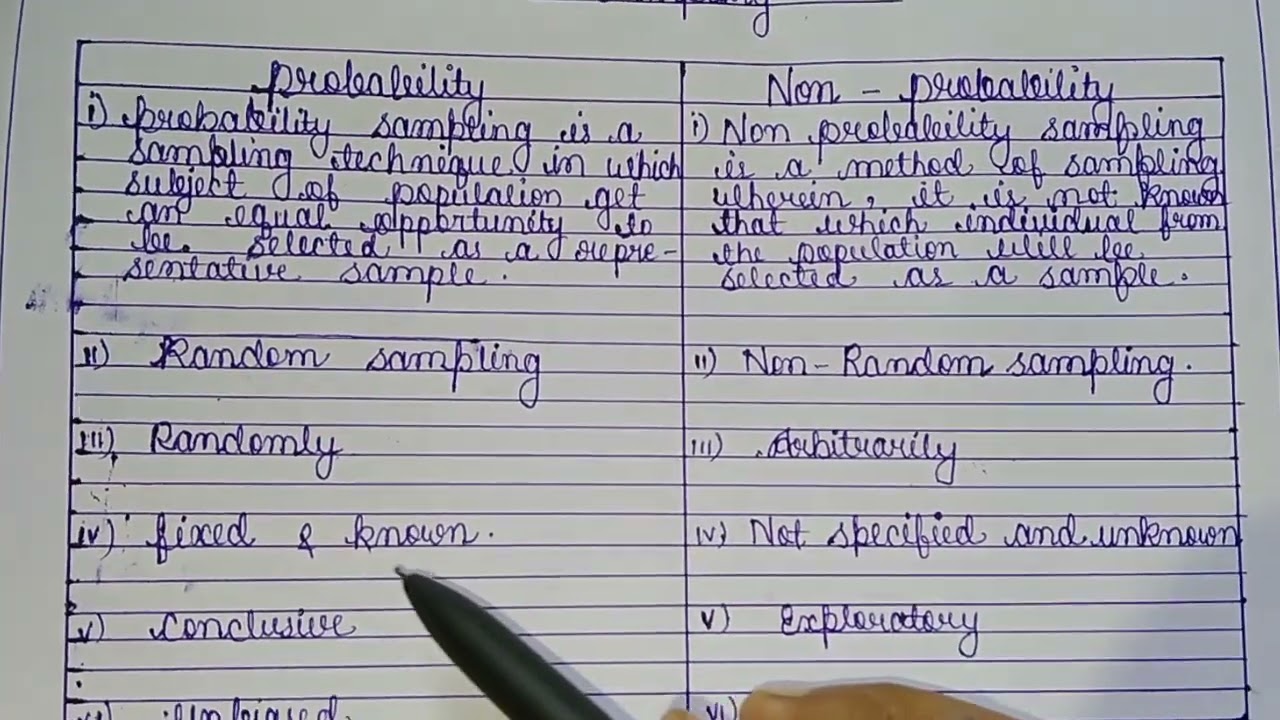 probability
Non - probability
i) Probability sampling is a
sampling technique in which
subject of population get
an equal opportunity to
be selected as a repre-
sentative sample.
i) Non probability sampling
is a method of sampling
wherein, it is not known
that which individual from
the population will be
selected as a sample.
ii) Random sampling
ii) Non-Random sampling.
iii) Randomly
iii) Arbitrarily
iv) fixed & known.
iv) Not specified and unknown
v) Conclusive
v) Exploratory
vi) Unbiased.
vi)